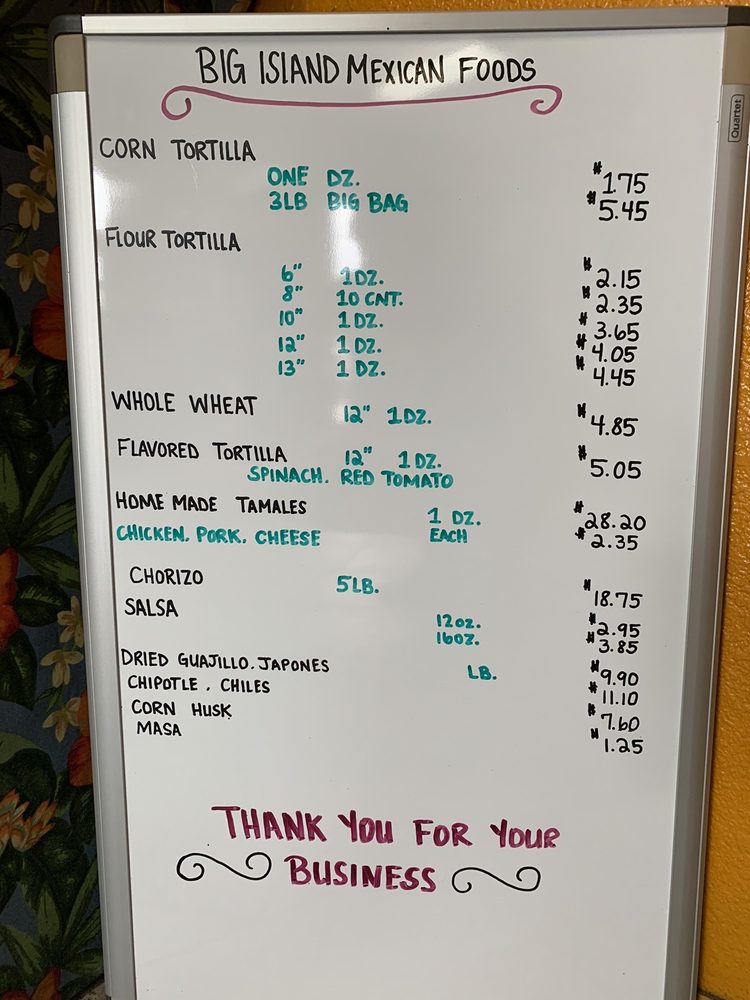 BIG ISLAND MEXICAN FOODS
Quartet
CORN TORTILLA
ONE DZ. $1.75
3LB BIG BAG $5.45
FLOUR TORTILLA
6" 1DZ. $2.15
8" 10 CNT. $2.35
10" 1 DZ. $3.65
12" 1 DZ. $4.05
13" 1 DZ. $4.45
WHOLE WHEAT 12" 1DZ. $4.85
FLAVORED TORTILLA 12" 1 DZ. $5.05
SPINACH. RED TOMATO
HOME MADE TAMALES 1 DZ. $28.20
CHICKEN. PORK. CHEESE EACH $2.35
CHORIZO 5LB. $18.75
SALSA 12oz. $2.95
16oz. $3.85
DRIED GUAJILLO. JAPONES LB. $9.90
CHIPOTLE . CHILES $11.10
CORN HUSK $7.60
MASA $1.25
THANK YOU FOR YOUR
BUSINESS